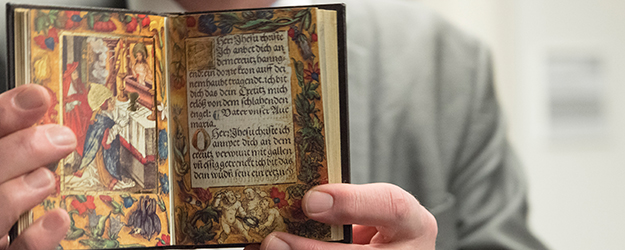 Herr Jhesu christe
Ich anbet dich an
dem creutz hanng-
endt ein dornne kron auff dei
nem haubt tragendt. ich bit
dich das dein Creutz mich
erlöß von dem schlahenden
engel: Vater vnser Aue
maria.
O Herr Jhesu christe ich
anwet dich an dem
creutz verwunt mit gallen
vñ essig getrenckt ich bit das
dein wūdñ sein ein